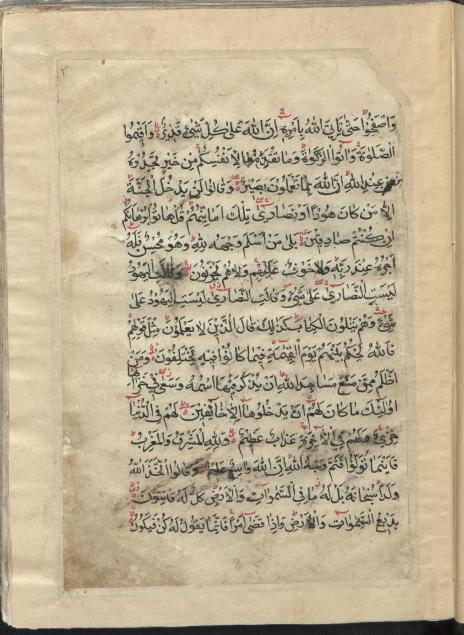 وَاصْفَحُوا حَتَّى يَأْتِيَ اللهُ بِأَمْرِهِ اِنَّ اللهَ عَلَى كُلِّ شَيْءٍ قَدِيرٌ وَاَقِيمُوا
الصَّلوٰةَ وَاٰتُوا الزَّكٰوةَ وَمَا تُقَدِّمُوا لِاَنْفُسِكُمْ مِنْ خَيْرٍ تَجِدُوهُ
عِنْدَ اللهِ اِنَّ اللهَ بِمَا تَعْمَلُونَ بَصِيرٌ وَقَالُوا لَنْ يَدْخُلَ الْجَنَّةَ
اِلَّا مَنْ كَانَ هُودًا اَوْ نَصَارَى تِلْكَ اَمَانِيُّهُمْ قُلْ هَاتُوا بُرْهَانَكُمْ
اِنْ كُنْتُمْ صَادِقِينَ بَلَى مَنْ اَسْلَمَ وَجْهَهُ لِلّٰهِ وَهُوَ مُحْسِنٌ فَلَهُ
اَجْرُهُ عِنْدَ رَبِّهِ وَلَا خَوْفٌ عَلَيْهِمْ وَلَا هُمْ يَحْزَنُونَ وَقَالَتِ الْيَهُودُ
لَيْسَتِ النَّصَارَى عَلَى شَيْءٍ وَقَالَتِ النَّصَارَى لَيْسَتِ الْيَهُودُ عَلَى
شَيْءٍ وَهُمْ يَتْلُونَ الْكِتَابَ كَذٰلِكَ قَالَ الَّذِينَ لَا يَعْلَمُونَ مِثْلَ قَوْلِهِمْ
فَاللهُ يَحْكُمُ بَيْنَهُمْ يَوْمَ الْقِيٰمَةِ فِيمَا كَانُوا فِيهِ يَخْتَلِفُونَ وَمَنْ
اَظْلَمُ مِمَّنْ مَنَعَ مَسَاجِدَ اللهِ اَنْ يُذْكَرَ فِيهَا اسْمُهُ وَسَعَى فِي خَرَابِهَا
اُولٰئِكَ مَا كَانَ لَهُمْ اَنْ يَدْخُلُوهَا اِلَّا خَائِفِينَ لَهُمْ فِي الدُّنْيَا
خِزْيٌ وَلَهُمْ فِي الْاٰخِرَةِ عَذَابٌ عَظِيمٌ وَلِلّٰهِ الْمَشْرِقُ وَالْمَغْرِبُ
فَاَيْنَمَا تُوَلُّوا فَثَمَّ وَجْهُ اللهِ اِنَّ اللهَ وَاسِعٌ عَلِيمٌ وَقَالُوا اتَّخَذَ اللهُ
وَلَدًا سُبْحَانَهُ بَلْ لَهُ مَا فِي السَّمٰوَاتِ وَالْاَرْضِ كُلٌّ لَهُ قَانِتُونَ
بَدِيعُ السَّمٰوَاتِ وَالْاَرْضِ وَاِذَا قَضَى اَمْرًا فَاِنَّمَا يَقُولُ لَهُ كُنْ فَيَكُونُ